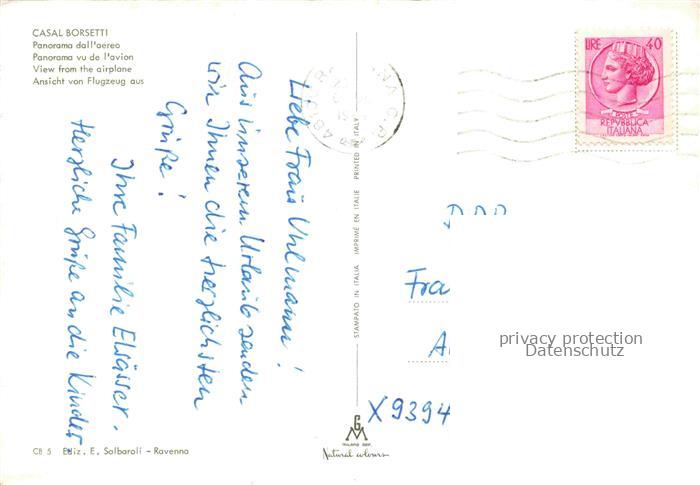 CASAL BORSETTI
Panorama dall'aereo
Panorama vu de l'avion
View from the airplane
Ansicht von Flugzeug aus
Liebe Frau Uhlmann!
Aus unserem Urlaub senden
wir Ihnen die herzlichsten
Grüße!
Ihre Familie Elsässer.
Herzliche Grüße an die Kinder.
CB 5 Ediz. E. Salbaroli - Ravenna
STAMPATO IN ITALIA IMPRIMÉ EN ITALIE PRINTED IN ITALY
MILANO DEP.
Natural colours
LIRE 40
POSTE
REPVBBLICA
ITALIANA
Fra
A
X 9394
privacy protection
Datenschutz